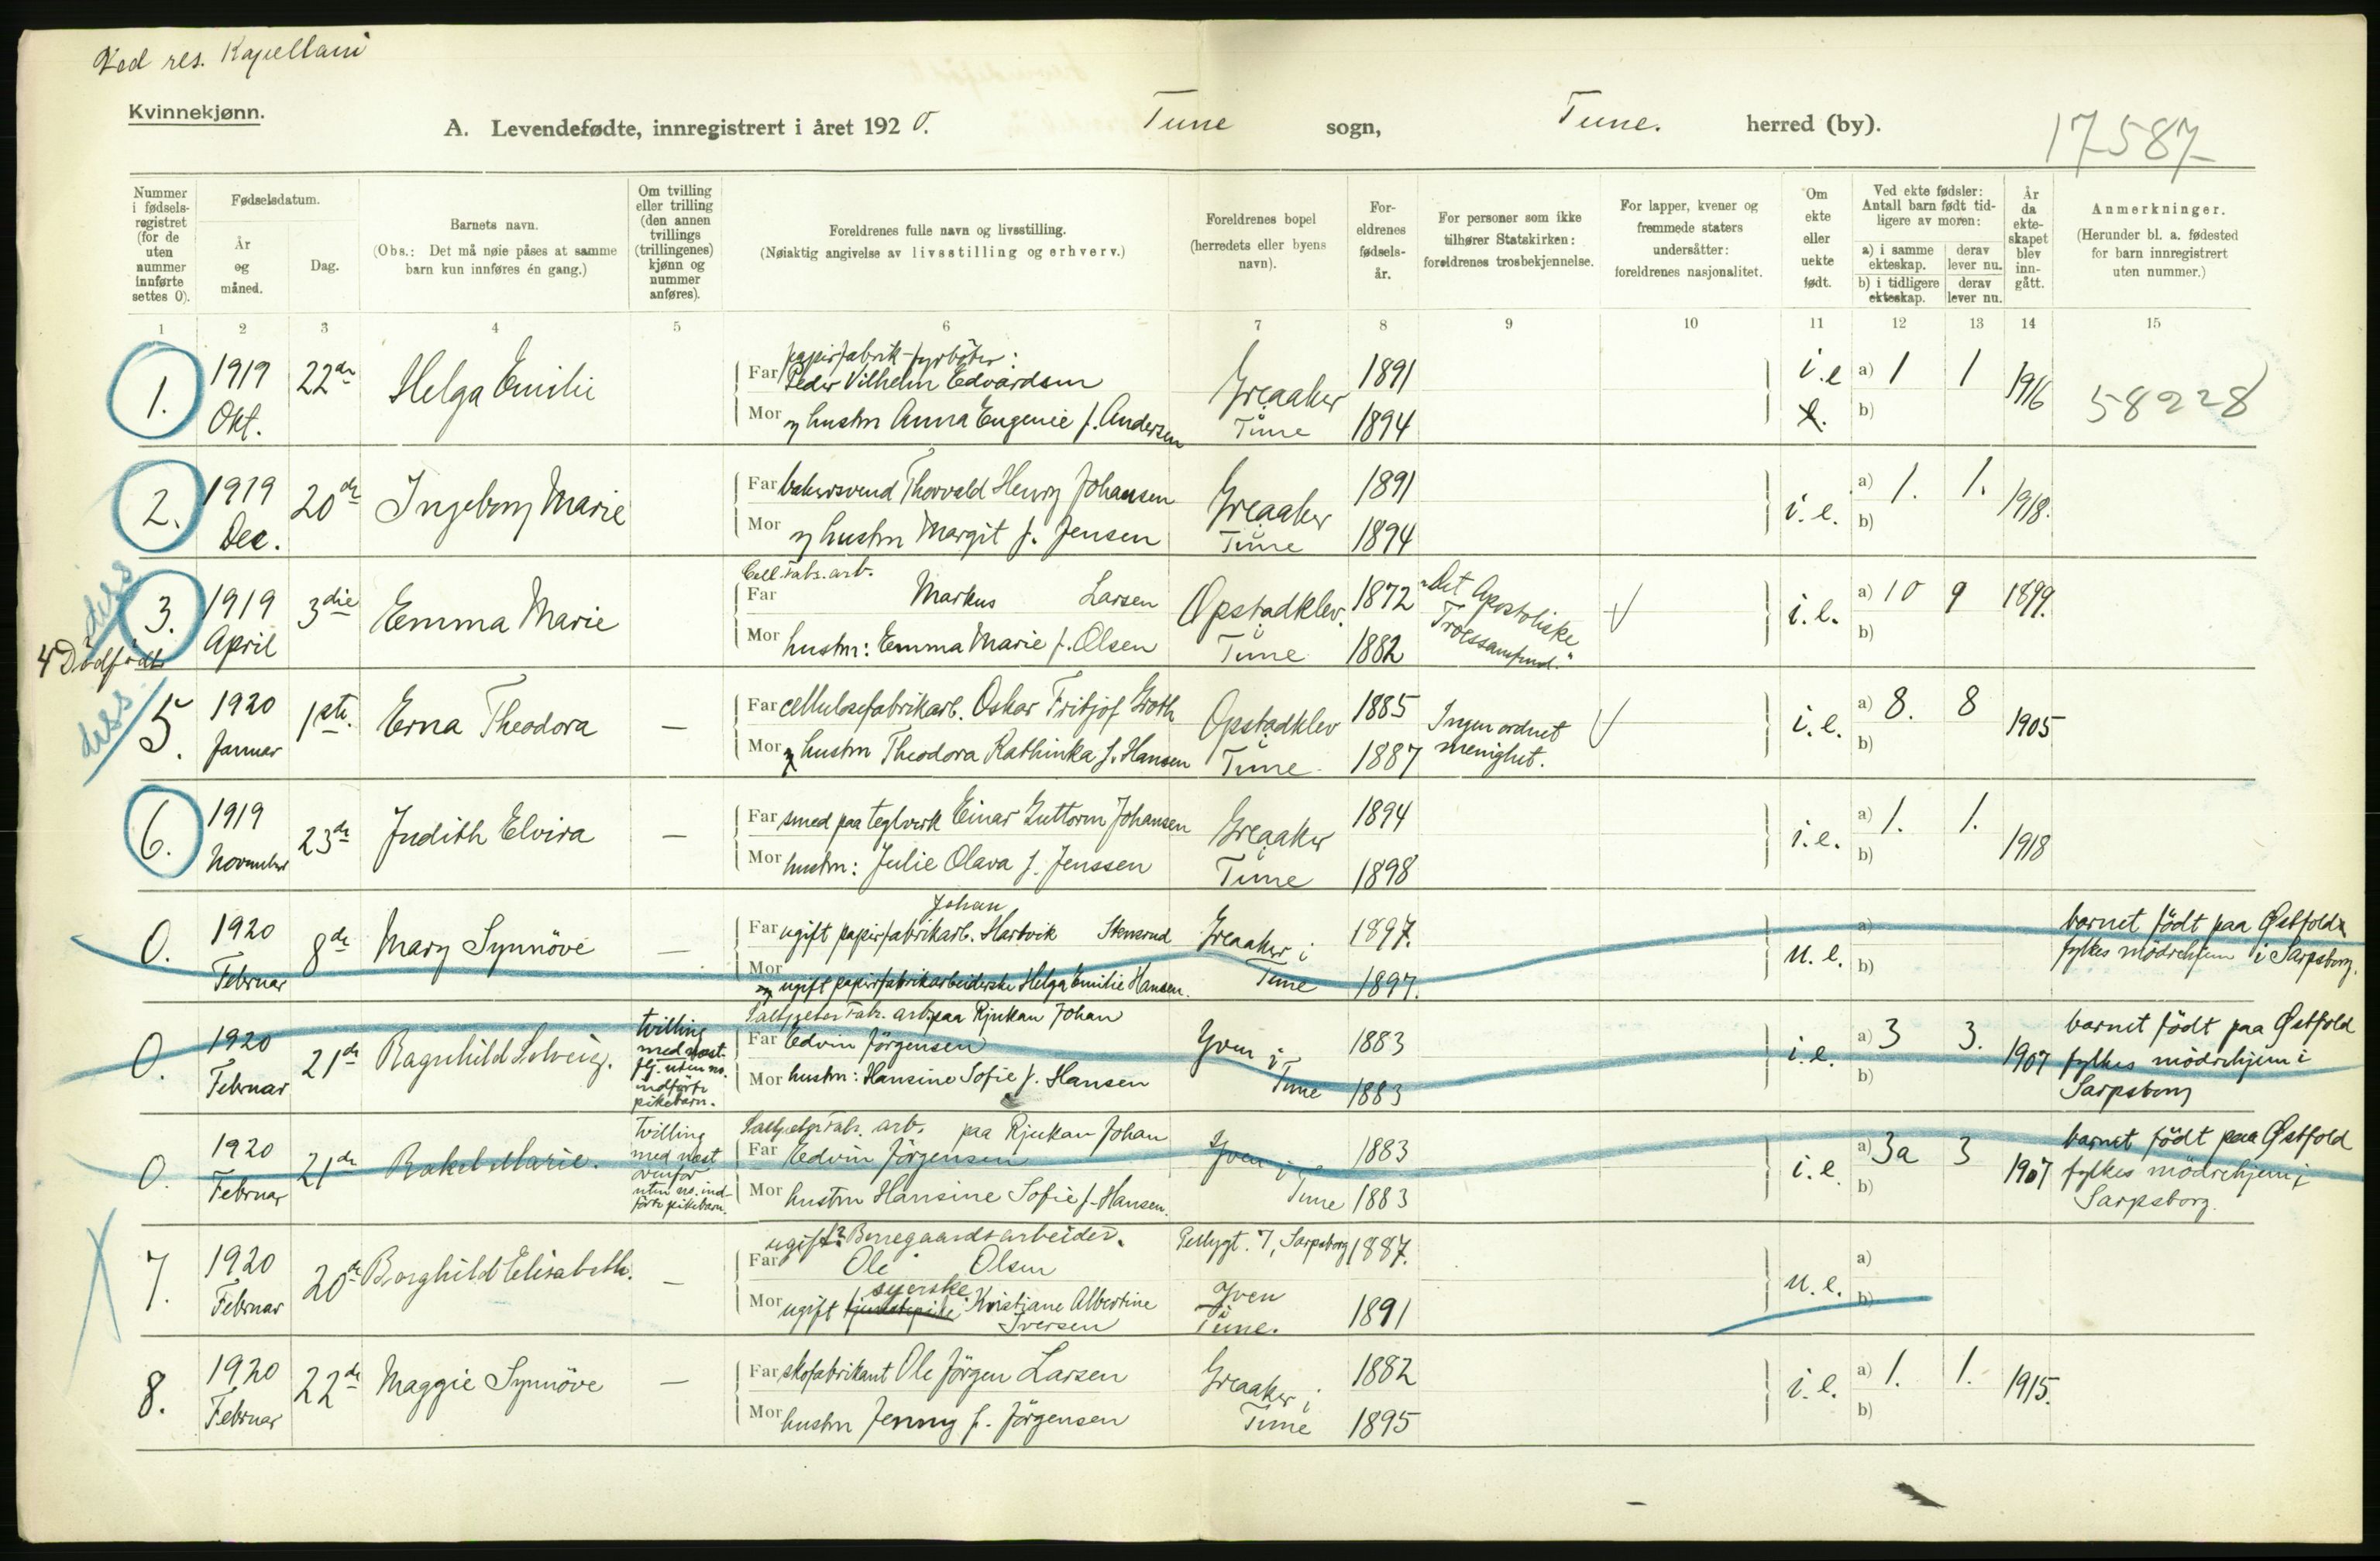 Ved res. Kapellani
Kvinnekjønn.
A. Levendefødte, innregistrert i året 1920. Tune sogn, Tune. herred (by).
17587
Nummer i fødsels-registret (for de uten nummer innførte settes 0).
Fødselsdatum.
År og måned.
Dag.
Barnets navn.
(Obs.: Det må nøie påses at samme barn kun innføres én gang.)
Om tvilling eller trilling (den annen tvillings (trillingenes) kjønn og nummer anføres).
Foreldrenes fulle navn og livsstilling.
(Nøiaktig angivelse av livsstilling og erhverv.)
Foreldrenes bopel (herredets eller byens navn).
For-eldrenes fødsels-år.
For personer som ikke tilhører Statskirken: foreldrenes trosbekjennelse.
For lapper, kvener og fremmede staters undersåtter: foreldrenes nasjonalitet.
Om ekte eller uekte født.
Ved ekte fødsler: Antall barn født tid-ligere av moren:
a) i samme ekteskap.
derav lever nu.
b) i tidligere ekteskap.
derav lever nu.
År da ekte-skapet blev inn-gått.
Anmerkninger.
(Herunder bl. a. fødested for barn innregistrert uten nummer.)
1 2 3 4 5 6 7 8 9 10 11 12 13 14 15
1. 1919 Okt. 22de Helga Emilie
papirfabrik-fyrbøter:
Far Peder Vilhelm Edvardsen
Mor og hustru Anna Eugenie f. Andersen
Greaaker i Tune 1891 1894 i.e a) 1 1 b) 1916 58228
2. 1919 Dec. 20de Ingeborg Marie
Far bakersvend Thorvald Henry Johansen
Mor og hustru Margit f. Jensen
Greaaker i Tune 1891 1894 i. e. a) 1. 1. b) 1918.
diss
3. 1919 April 3die Emma Marie
Cell.fabr.arb.
Far Markus Larsen
Mor hustru: Emma Marie f. Olsen
Opstadklev. i Tune 1872 1882 "Det Apostoliske Troessamfund." i. e. a) 10 9 b) 1899.
4 Dödfödt
diss.
5. 1920 Januar 1ste. Erna Theodora —
Far cellulosefabrikarb. Oskar Fritjof Groth
Mor og hustru Theodora Kathinka f. Hansen
Opstadklev i Tune. 1885 1887 Ingen ordnet menighet. i. e. a) 8. 8 b) 1905
6. 1919 November 23de Judith Elvira —
Far smed paa teglverk Einar Guttorm Johansen
Mor hustru: Julie Olava f. Jenssen
Greaaker i Tune 1894 1898 i. e. a) 1. 1. b) 1918
0. 1920 Februar 8de Mary Synnöve —
Johan
Far ugift papirfabrikarb. Hartvik Stensrud
Mor og ugift papirfabrikarbeiderske Helga Emilie Hansen.
Greaaker i Tune 1897. 1897. u. e. a) b)
barnet födt paa Østfold fylkes mödrehjem i Sarpsborg.
0. 1920 Februar 21de Ragnhild Solveig.
tvilling med næst flg. uten no. indförte pikebarn.
Salpeter fabr. arb. paa Rjukan Johan
Far Edvin Jörgensen
Mor hustru: Hansine Sofie f. Hansen
Yven i Tune 1883 1883 i. e. a) 3 3. b) 1907
barnet födt paa Østfold fylkes mödrehjem i Sarpsborg
0. 1920 Februar 21de Rakel Marie.
Tvilling med næst ovenfor uten no. ind-förte pikebarn.
Salpeter fabr. arb. paa Rjukan Johan
Far Edvin Jörgensen
Mor hustru Hansine Sofie f. Hansen.
Yven i Tune 1883 1883 i. e. a) 3 3 b) 1907
barnet födt paa Østfold fylkes mödrehjem i Sarpsborg.
7. 1920 Februar 20de Borghild Elisabeth. —
ugift? Borregaardsarbeider.
Far Ole Olsen
syerske
Mor ugift tjenestepike Kristiane Albertine Iversen
7, Sarpsborg 1887.
Yven i Tune. 1891 u. e. a) b)
8. 1920 Februar 22de Maggie Synnöve —
Far skofabrikant Ole Jörgen Larsen
Mor hustru Jenny f. Jörgensen
Greaaker i Tune 1882 1895 i. e. a) 1. 1. b) 1915.